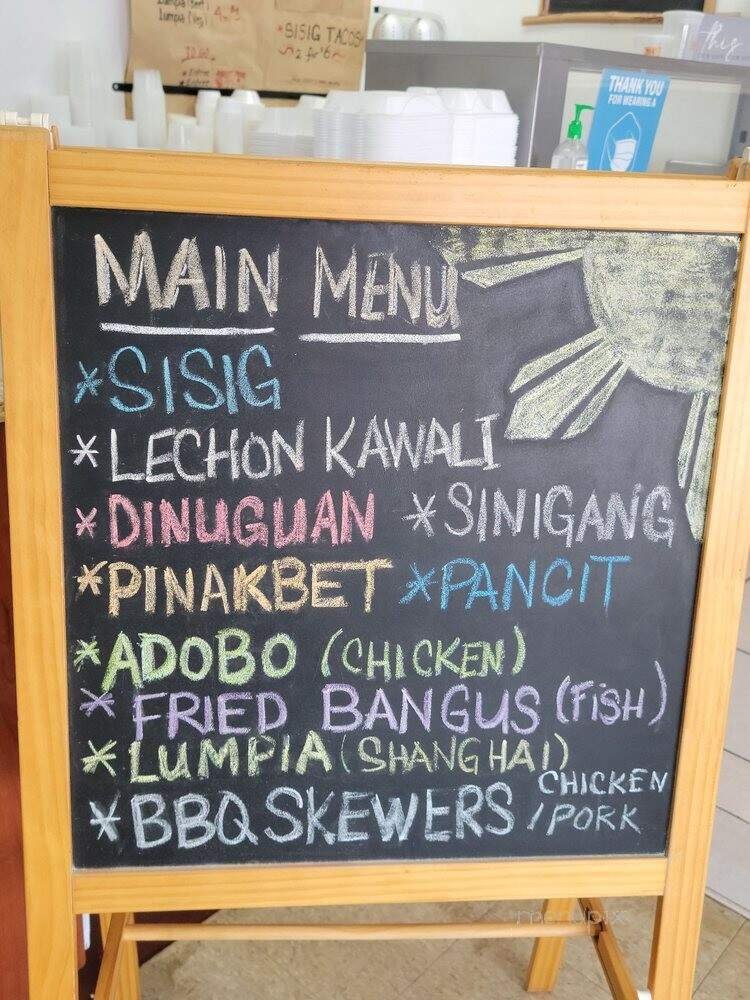 Lumpia
Lumpia (Veg)
*SISIG TACOS
2 for $6
THANK YOU
FOR WEARING A
MAIN MENU
*SISIG
*LECHON KAWALI
*DINUGUAN *SINIGANG
*PINAKBET *PANCIT
*ADOBO (CHICKEN)
*FRIED BANGUS (FISH)
*LUMPIA (SHANGHAI)
*BBQ SKEWERS CHICKEN
/PORK
menupix